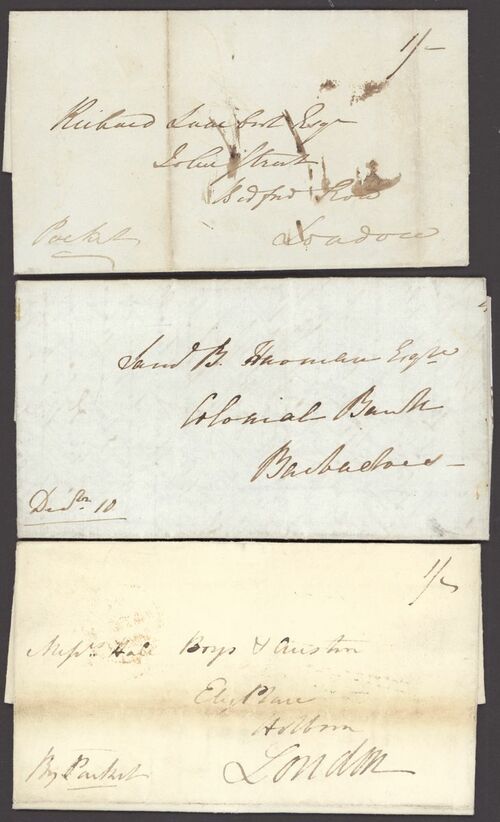 1/-
Richard Lambert Esqr
John Street
Bedford Row
London
Packet
Saml B. Harman Esqre
Colonial Bank
Barbadoes -
10
1/-
Messrs Hall Boys & Austin
Ely Place
Holborn
London
By Packet